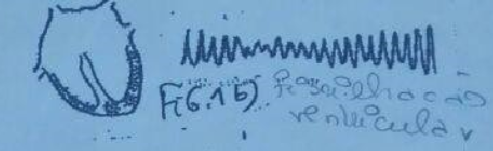 FiG.15) Fibrilhação
ventricular